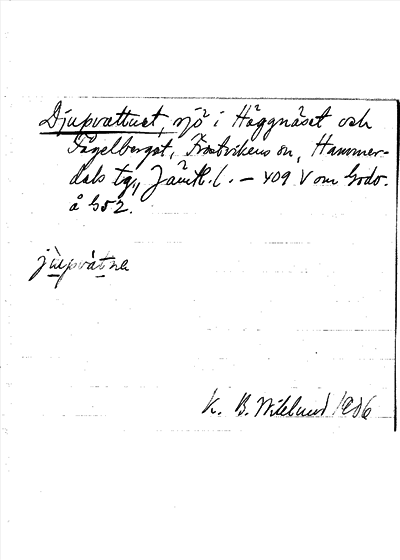 Djupvattnet, sjö i Häggnäset och
Fågelberget, Frostvikens sn, Hammer-
dals tg, Jämtl. l. – 409 V om
å 352.
jùpvàtnə
K. B. Wiklund 1906